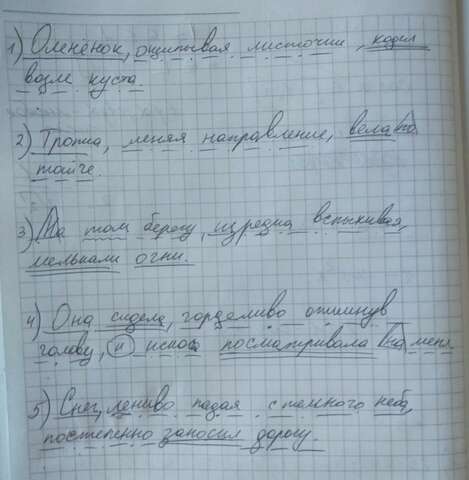 1) Оленёнок, ощипывая листочки, ходил
возле куста.
2) Тропа, меняя направление, вела по
тайге.
3) На том берегу, изредка вспыхивая,
мелькали огни.
4) Она сидела, горделиво откинув
голову, и искоса посматривала на меня
5) Снег, лениво падая с темного неба,
постепенно заносил дорогу.